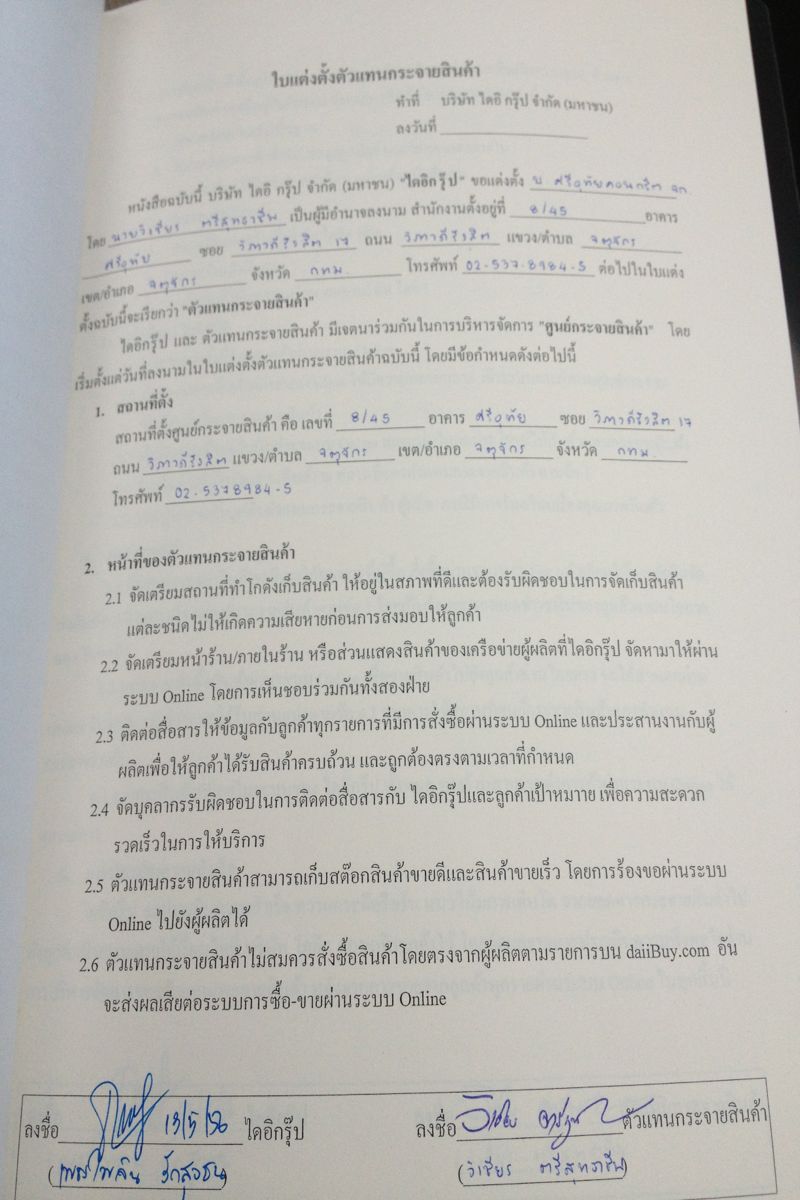 ใบแต่งตั้งตัวแทนกระจายสินค้า
ทำที่ บริษัท ไดอิ กรุ๊ป จำกัด (มหาชน)
ลงวันที่
หนังสือฉบับนี้ บริษัท ไดอิ กรุ๊ป จำกัด (มหาชน) "ไดอิกรุ๊ป" ขอแต่งตั้ง บ ศรีอุทัยคอนกรีต จก
โดย นายวิเชียร ตรีสุทธาชีพ เป็นผู้มีอำนาจลงนาม สำนักงานตั้งอยู่ที่ 8/45 อาคาร
ศรีอุทัย ซอย วิภาวดีรังสิต 17 ถนน วิภาวดีรังสิต แขวง/ตำบล จตุจักร
เขต/อำเภอ จตุจักร จังหวัด กทม. โทรศัพท์ 02-537-8984-5 ต่อไปในใบแต่ง
ตั้งฉบับนี้จะเรียกว่า "ตัวแทนกระจายสินค้า"
ไดอิกรุ๊ป และ ตัวแทนกระจายสินค้า มีเจตนาร่วมกันในการบริหารจัดการ "ศูนย์กระจายสินค้า" โดย
เริ่มตั้งแต่วันที่ลงนามในใบแต่งตั้งตัวแทนกระจายสินค้าฉบับนี้ โดยมีข้อกำหนดดังต่อไปนี้
1. สถานที่ตั้ง
สถานที่ตั้งศูนย์กระจายสินค้า คือ เลขที่ 8/45 อาคาร ศรีอุทัย ซอย วิภาวดีรังสิต 17
ถนน วิภาวดีรังสิต แขวง/ตำบล จตุจักร เขต/อำเภอ จตุจักร จังหวัด กทม.
โทรศัพท์ 02-5378984-5
2. หน้าที่ของตัวแทนกระจายสินค้า
2.1 จัดเตรียมสถานที่ทำโกดังเก็บสินค้า ให้อยู่ในสภาพที่ดีและต้องรับผิดชอบในการจัดเก็บสินค้า
แต่ละชนิดไม่ให้เกิดความเสียหายก่อนการส่งมอบให้ลูกค้า
2.2 จัดเตรียมหน้าร้าน/ภายในร้าน หรือส่วนแสดงสินค้าของเครือข่ายผู้ผลิตที่ไดอิกรุ๊ป จัดหามาให้ผ่าน
ระบบ Online โดยการเห็นชอบร่วมกันทั้งสองฝ่าย
2.3 ติดต่อสื่อสารให้ข้อมูลกับลูกค้าทุกรายการที่มีการสั่งซื้อผ่านระบบ Online และประสานงานกับผู้
ผลิตเพื่อให้ลูกค้าได้รับสินค้าครบถ้วน และถูกต้องตรงตามเวลาที่กำหนด
2.4 จัดบุคลากรรับผิดชอบในการติดต่อสื่อสารกับ ไดอิกรุ๊ปและลูกค้าเป้าหมาย เพื่อความสะดวก
รวดเร็วในการให้บริการ
2.5 ตัวแทนกระจายสินค้าสามารถเก็บสต๊อกสินค้าขายดีและสินค้าขายเร็ว โดยการร้องขอผ่านระบบ
Online ไปยังผู้ผลิตได้
2.6 ตัวแทนกระจายสินค้าไม่สมควรสั่งซื้อสินค้าโดยตรงจากผู้ผลิตตามรายการบน daiiBuy.com อัน
จะส่งผลเสียต่อระบบการซื้อ-ขายผ่านระบบ Online
ลงชื่อ 13/5/56 ไดอิกรุ๊ป ลงชื่อ ตัวแทนกระจายสินค้า
(วิเชียร ตรีสุทธาชีพ)